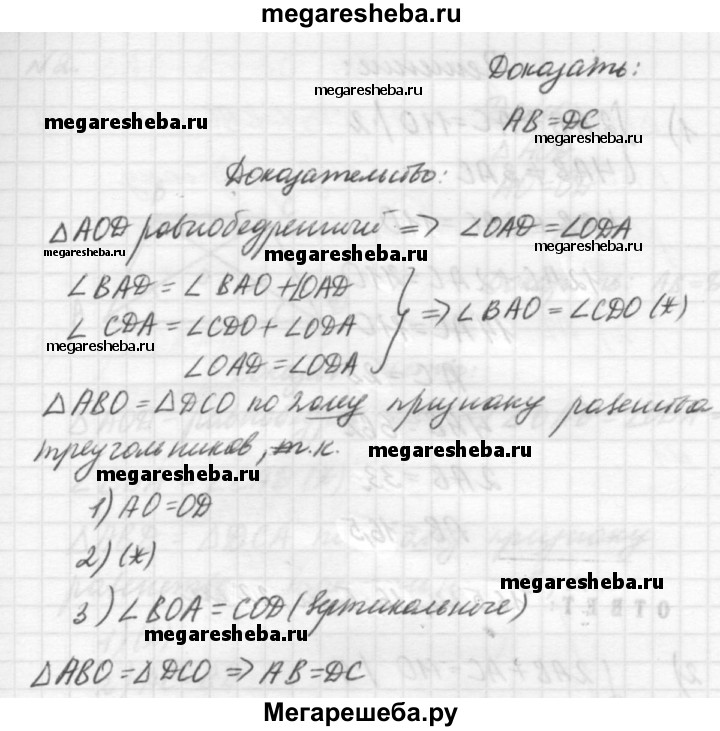 megaresheba.ru
Доказать:
megaresheba.ru
megaresheba.ru
AB = DC
megaresheba.ru
Доказательство:
△AOD равнобедренный => ∠OAD = ∠ODA
megaresheba.ru
megaresheba.ru
megaresheba.ru
∠BAD = ∠BAO + ∠OAD
∠CDA = ∠CDO + ∠ODA
∠OAD = ∠ODA
} => ∠BAO = ∠CDO (*)
megaresheba.ru
△ABO = △DCO по 2-ому признаку равенства
треугольников, т.к.
megaresheba.ru
megaresheba.ru
1) AO = OD
2) (*)
megaresheba.ru
3) ∠BOA = COD (вертикальные)
megaresheba.ru
△ABO = △DCO => AB = DC
Мегарешеба.ру